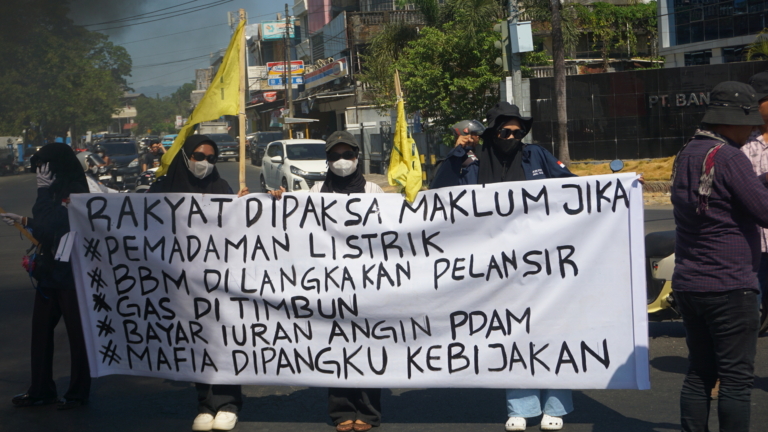 PT. BAN
RAKYAT DIPAKSA MAKLUM JIKA
# PEMADAMAN LISTRIK
# BBM DI LANGKAKAN PELANSIR
# GAS DI TIMBUN
# BAYAR IURAN ANGIN PDAM
# MAFIA DIPANGKU KEBIJAKAN